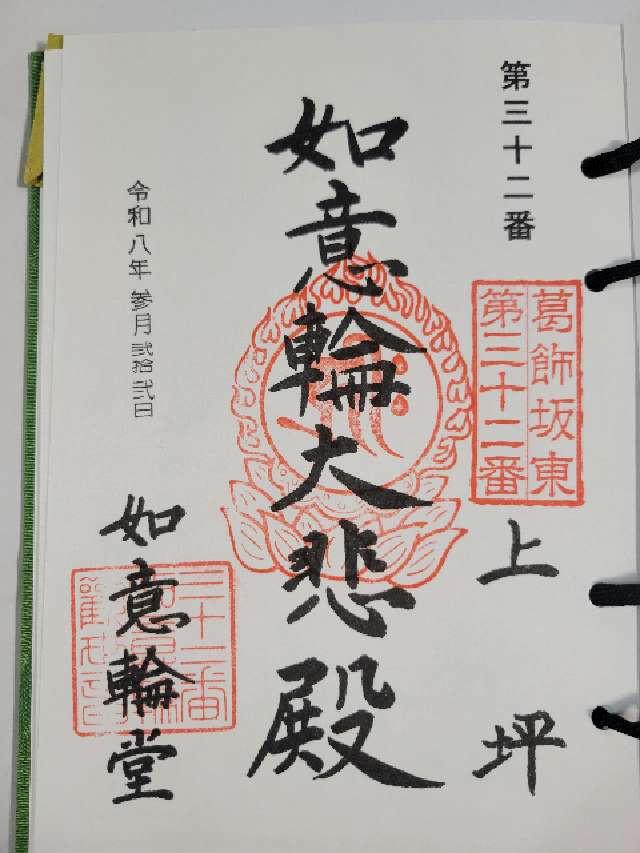 第三十二番
葛飾坂東
第三十二番
上坪
如意輪大悲殿
令和八年参月弐拾弐日
如意輪堂
三十二番